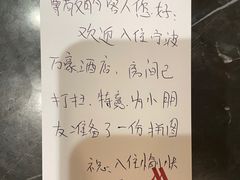 尊敬的客人您好:
欢迎入住宁波
万豪酒店,房间已
打扫,特意为小朋
友准备了一份拼图
祝:入住愉快